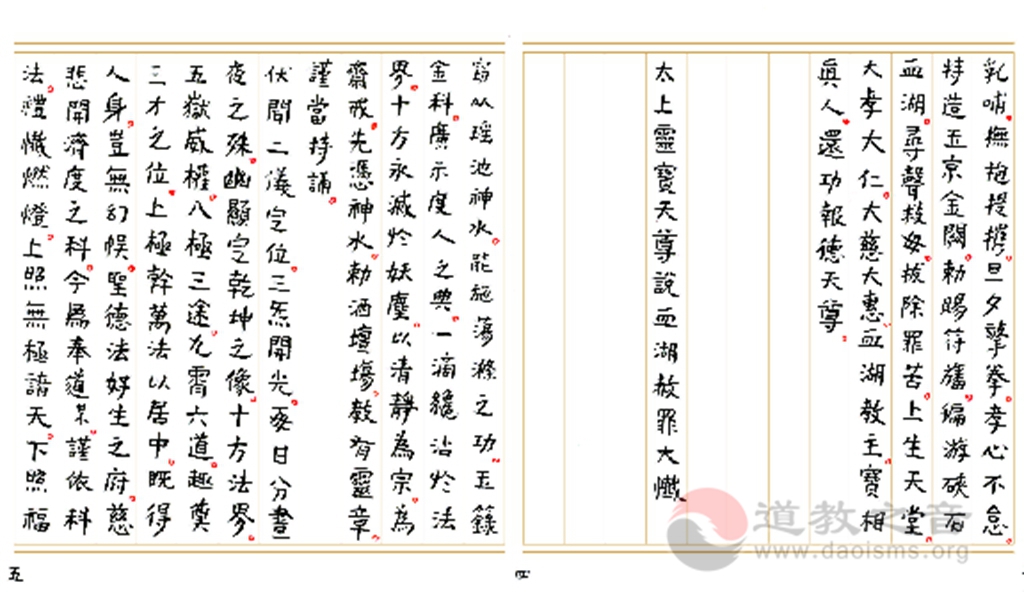 乳哺撫抱提攜旦夕擎拳孝心不怠
特造五京金闕勅賜符旛徧游硤石
血湖尋聲救姆拔除罪苦上生天堂
大孝大仁大慈大惠血湖教主寶相
眞人還功報德天尊
太上靈寶天尊說血湖赦罪大懺
竊以瑤池神水能施蕩滌之功玉籙
金科廣示度人之典一滴纔沾於法
界十方永滅於妖塵以清靜為宗為
齋戒先憑神水勅洒壇場教有靈章
謹當持誦
伏聞二儀定位三炁開光逐日分晝
夜之殊幽顯定乾坤之像十方法界
五嶽威權八極三途九霄六道趣奠
三才之位上極幹萬法以居中既得
人身豈無幻悞聖德法好生之府慈
悲開濟度之科今為奉道某謹依科
法禮懺燃燈上照無極諸天下照福
道教之音
www.daoisms.org
四
五